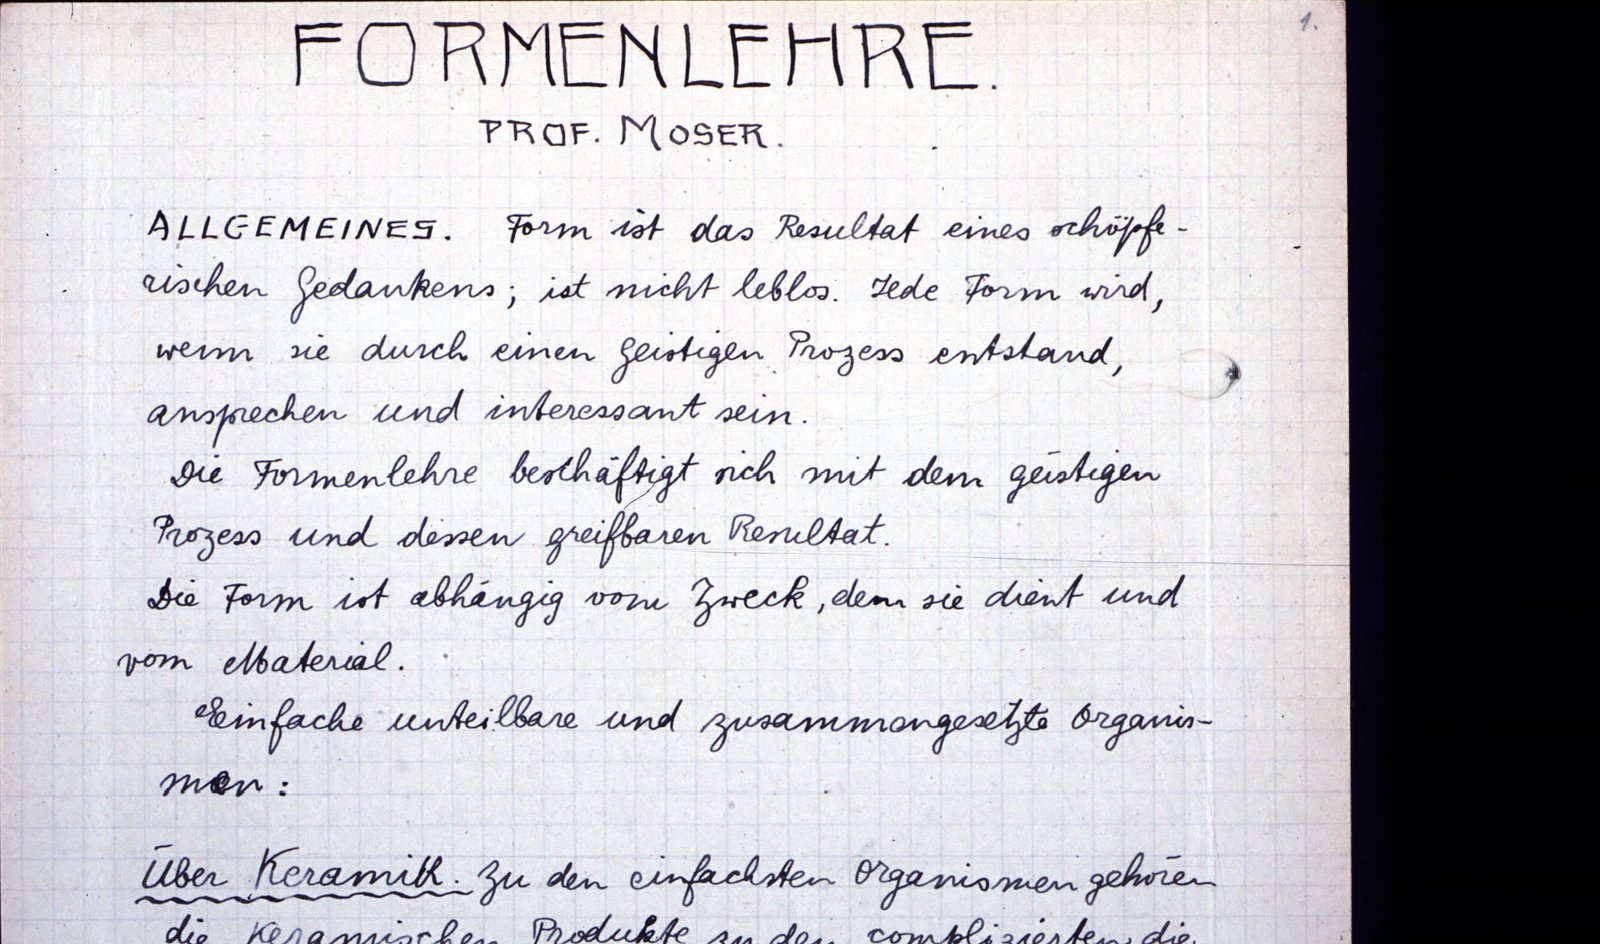 1.
FORMENLEHRE.
PROF. MOSER.
ALLGEMEINES. Form ist das Resultat eines schöpfe-
rischen Gedankens; ist nicht leblos. Jede Form wird,
wenn sie durch einen geistigen Prozess entstand,
ansprechen und interessant sein.
Die Formenlehre beschäftigt sich mit dem geistigen
Prozess und dessen greifbaren Resultat.
Die Form ist abhängig vom Zweck, dem sie dient und
vom Material.
Einfache unteilbare und zusammengesetzte Organis-
men:
Über Keramik. Zu den einfachsten Organismen gehören
die Keramischen Produkte zu den complizierten die